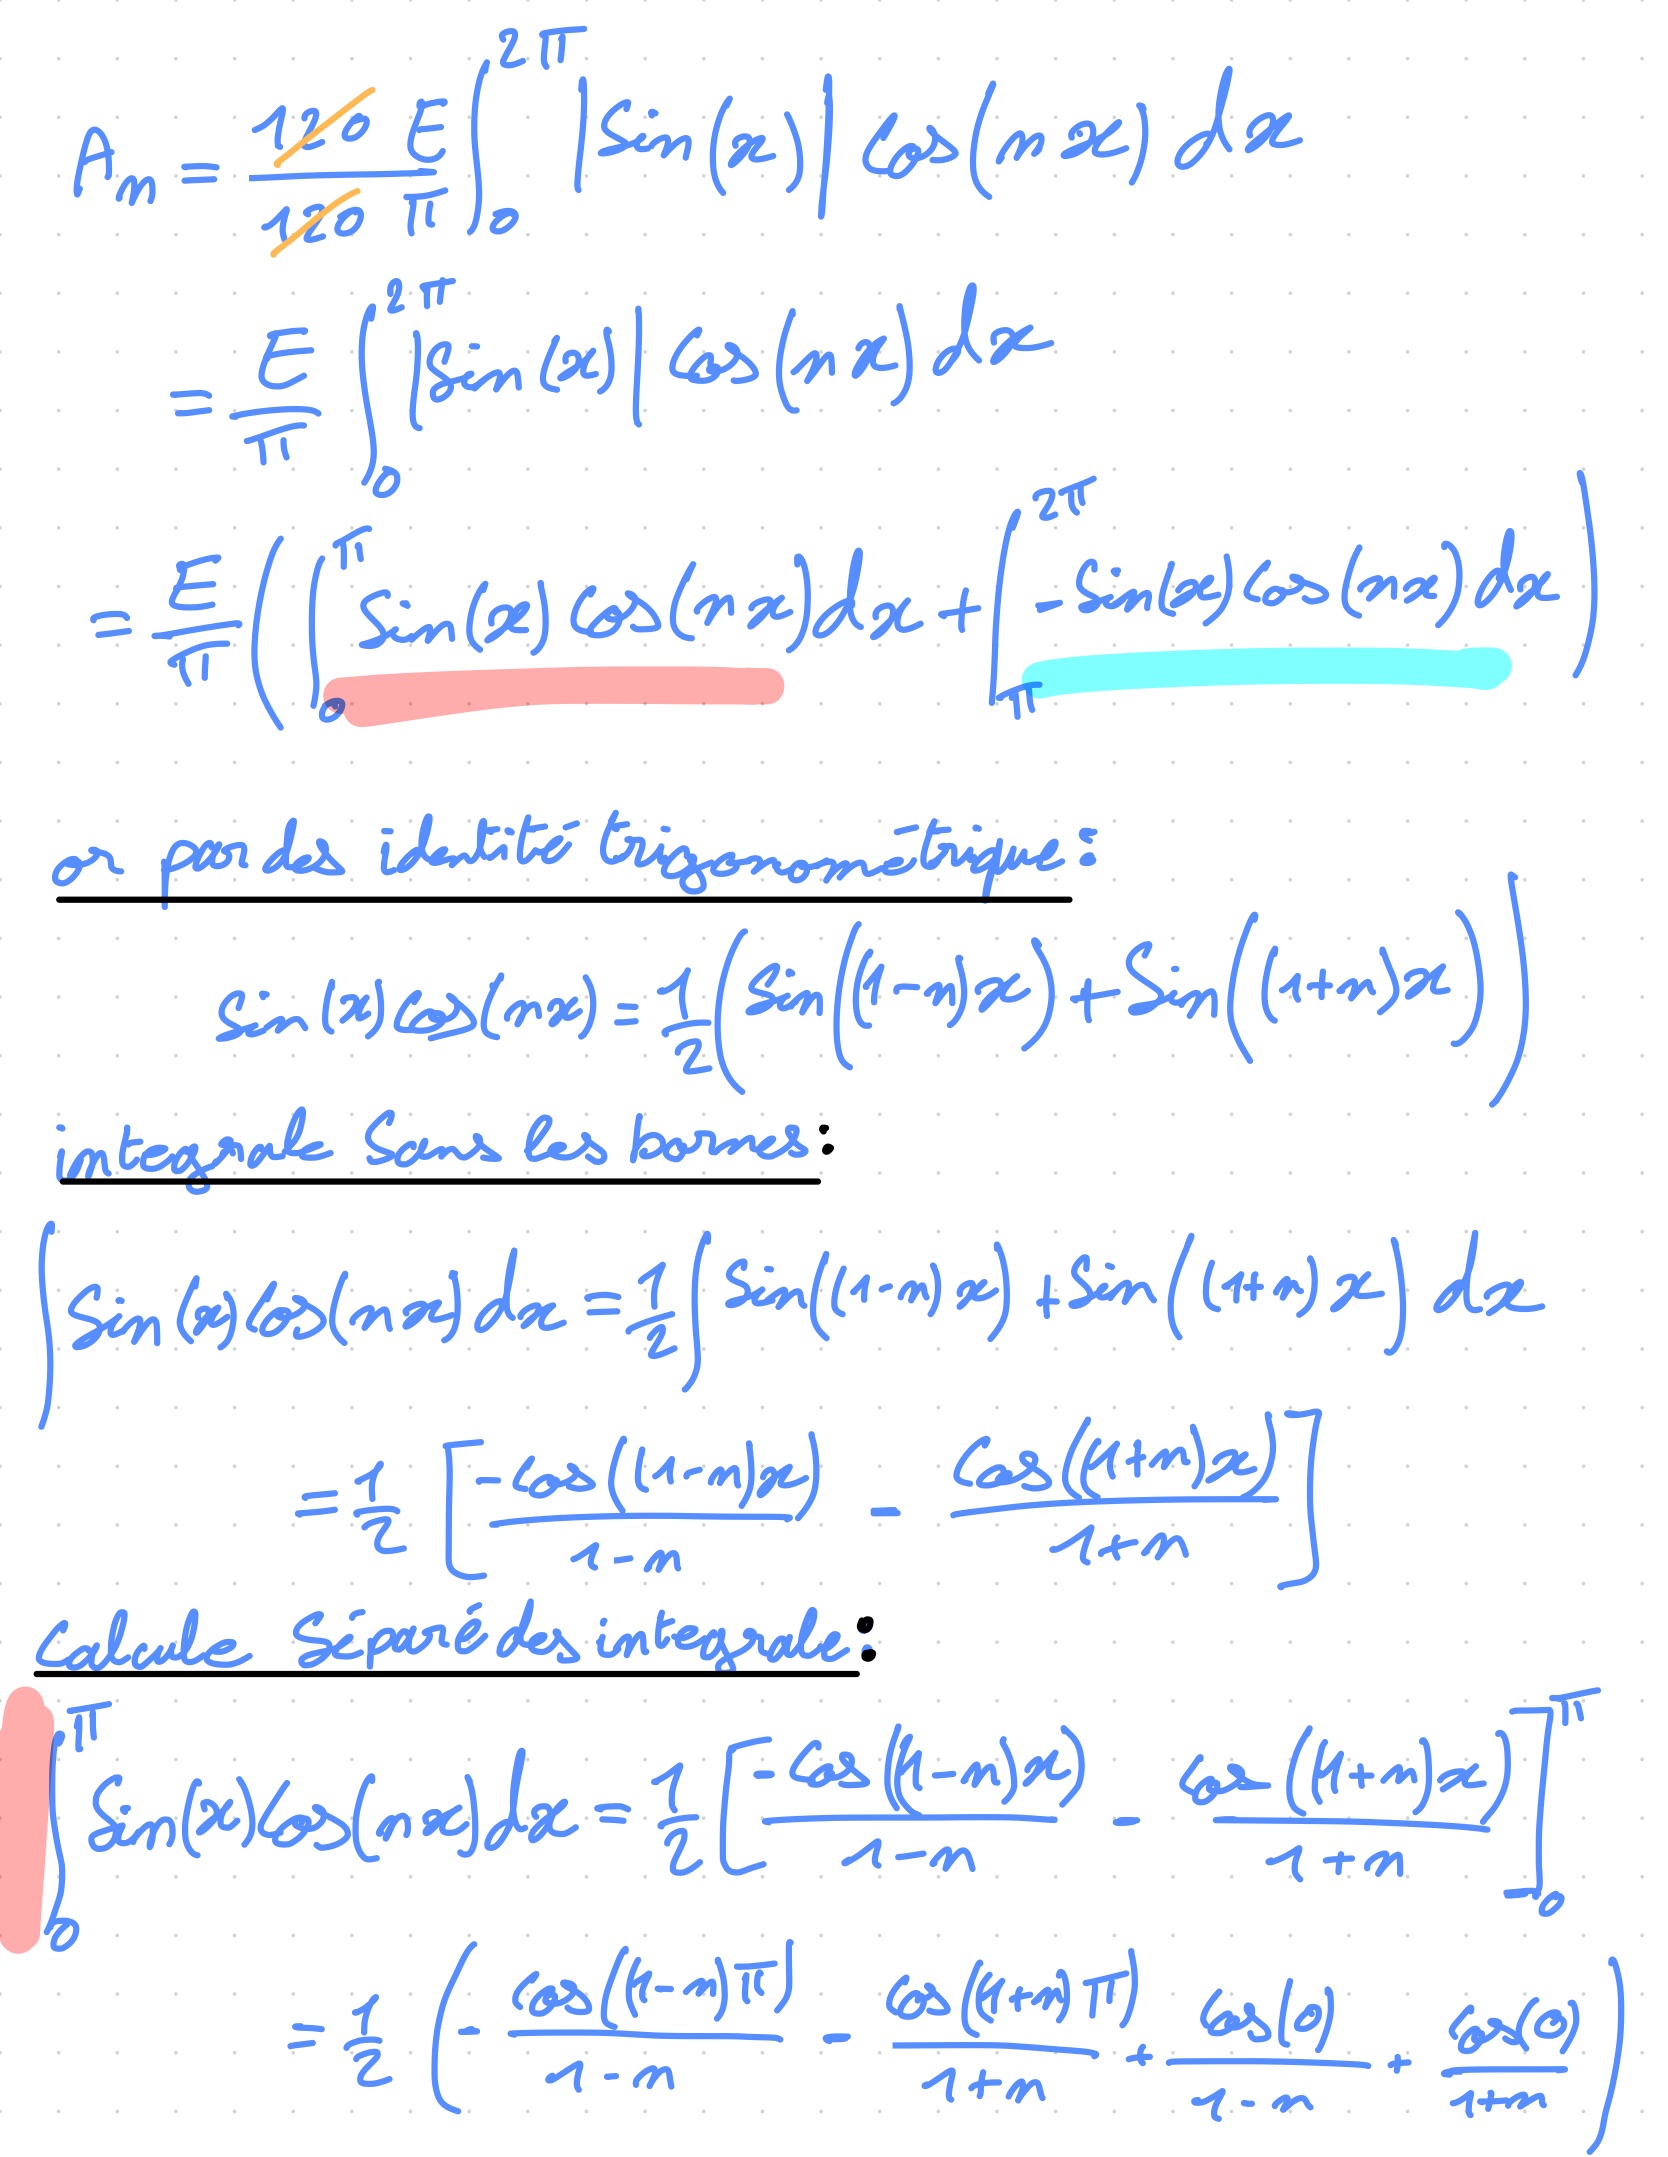 A_n = 120 E / 120 π ∫_0^{2π} |Sin(x)| Cos(nx) dx
= E/π ∫_0^{2π} |Sin(x)| Cos(nx) dx
= E/π ( ∫_0^π Sin(x) Cos(nx) dx + ∫_π^{2π} - Sin(x) Cos(nx) dx )
or par des identité trigonométrique :
Sin(x) Cos(nx) = 1/2 ( Sin((1-n)x) + Sin((1+n)x) )
integrale Sans les bornes :
∫ Sin(x) Cos(nx) dx = 1/2 ∫ Sin((1-n)x) + Sin((1+n)x) dx
= 1/2 [ -Cos((1-n)x) / 1-n - Cos((1+n)x) / 1+n ]
Calcule Séparé des integrale :
∫_0^π Sin(x) Cos(nx) dx = 1/2 [ -Cos((1-n)x) / 1-n - Cos((1+n)x) / 1+n ]_0^π
= 1/2 ( - Cos((1-n)π) / 1-n - Cos((1+n)π) / 1+n + Cos(0) / 1-n + Cos(0) / 1+n )